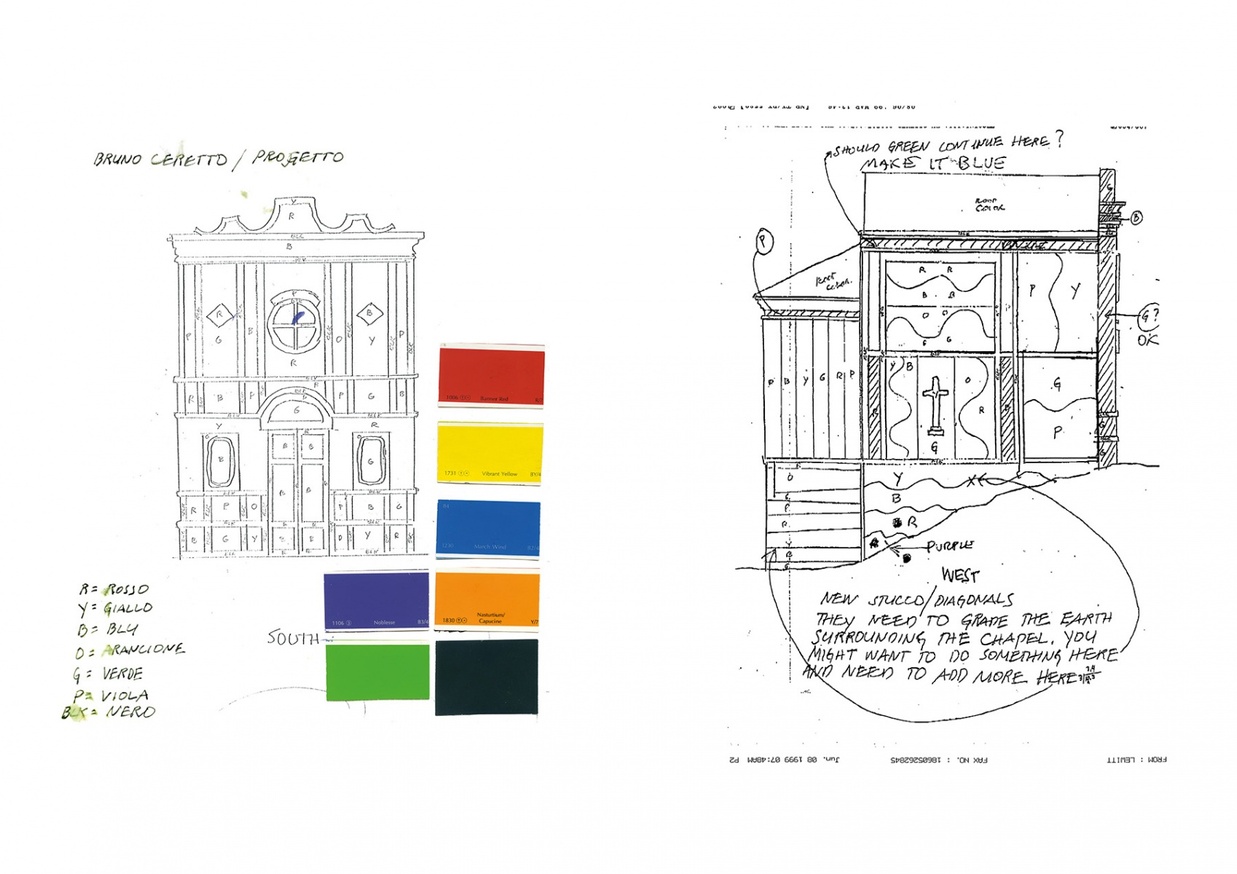 BRUNO CERETTO / PROGETTO
Y
R
BLK
B
BLK
P
R
B
P
G
Y
P
O
R
R
B
P
P
G
B
G
Y
R
B
G
B
B
B
B
R
P
O
P
B
G
B
G
Y
O
Y
R
1731
Vibrant Yellow
1106
Noblesse
1830
Nasturtium/
Capucine
R = ROSSO
Y = GIALLO
B = BLU
O = ARANCIONE
G = VERDE
P = VIOLA
BLK = NERO
SOUTH
SHOULD GREEN CONTINUE HERE?
MAKE IT BLUE
ROOF
COLOR
B
P
ROOF
COLOR
R R
B B
O O
G G
P Y
G?
OK
P B Y G R P
Y B
O
R
G
G
P
O
Y
B
R
PURPLE
WEST
NEW STUCCO/DIAGONALS
THEY NEED TO GRADE THE EARTH
SURROUNDING THE CHAPEL. YOU
MIGHT WANT TO DO SOMETHING HERE
AND NEED TO ADD MORE HERE
FROM : LEWITT
FAX NO. : 18605262845
Jun. 08 1999 07:48AM P2